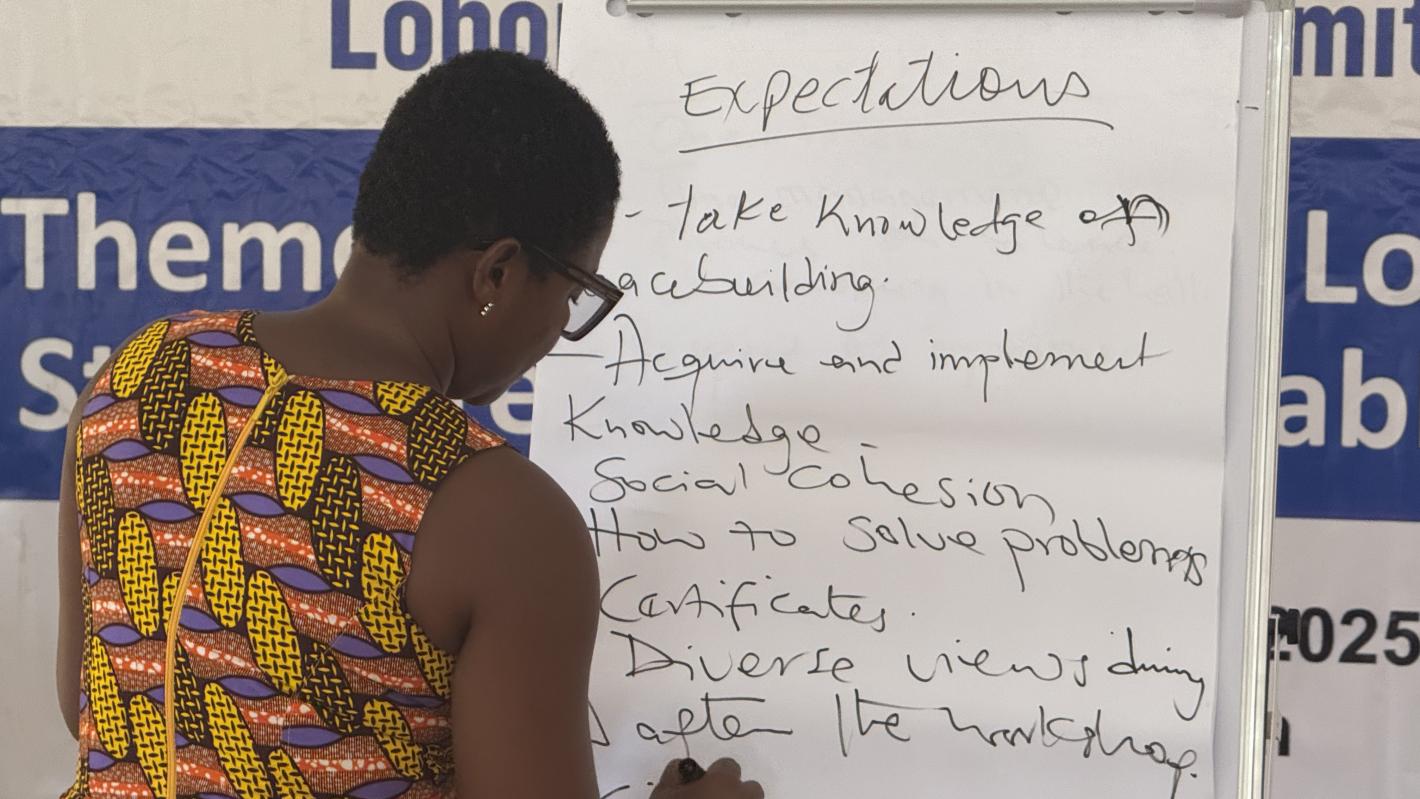 Expectations
- take Knowledge on
acebuilding.
- Acquire and implement
Knowledge -
Social Cohesion
How to solve problems
Certificates.
Diverse views during
after the workshop.
Them
Lo
ab
2025